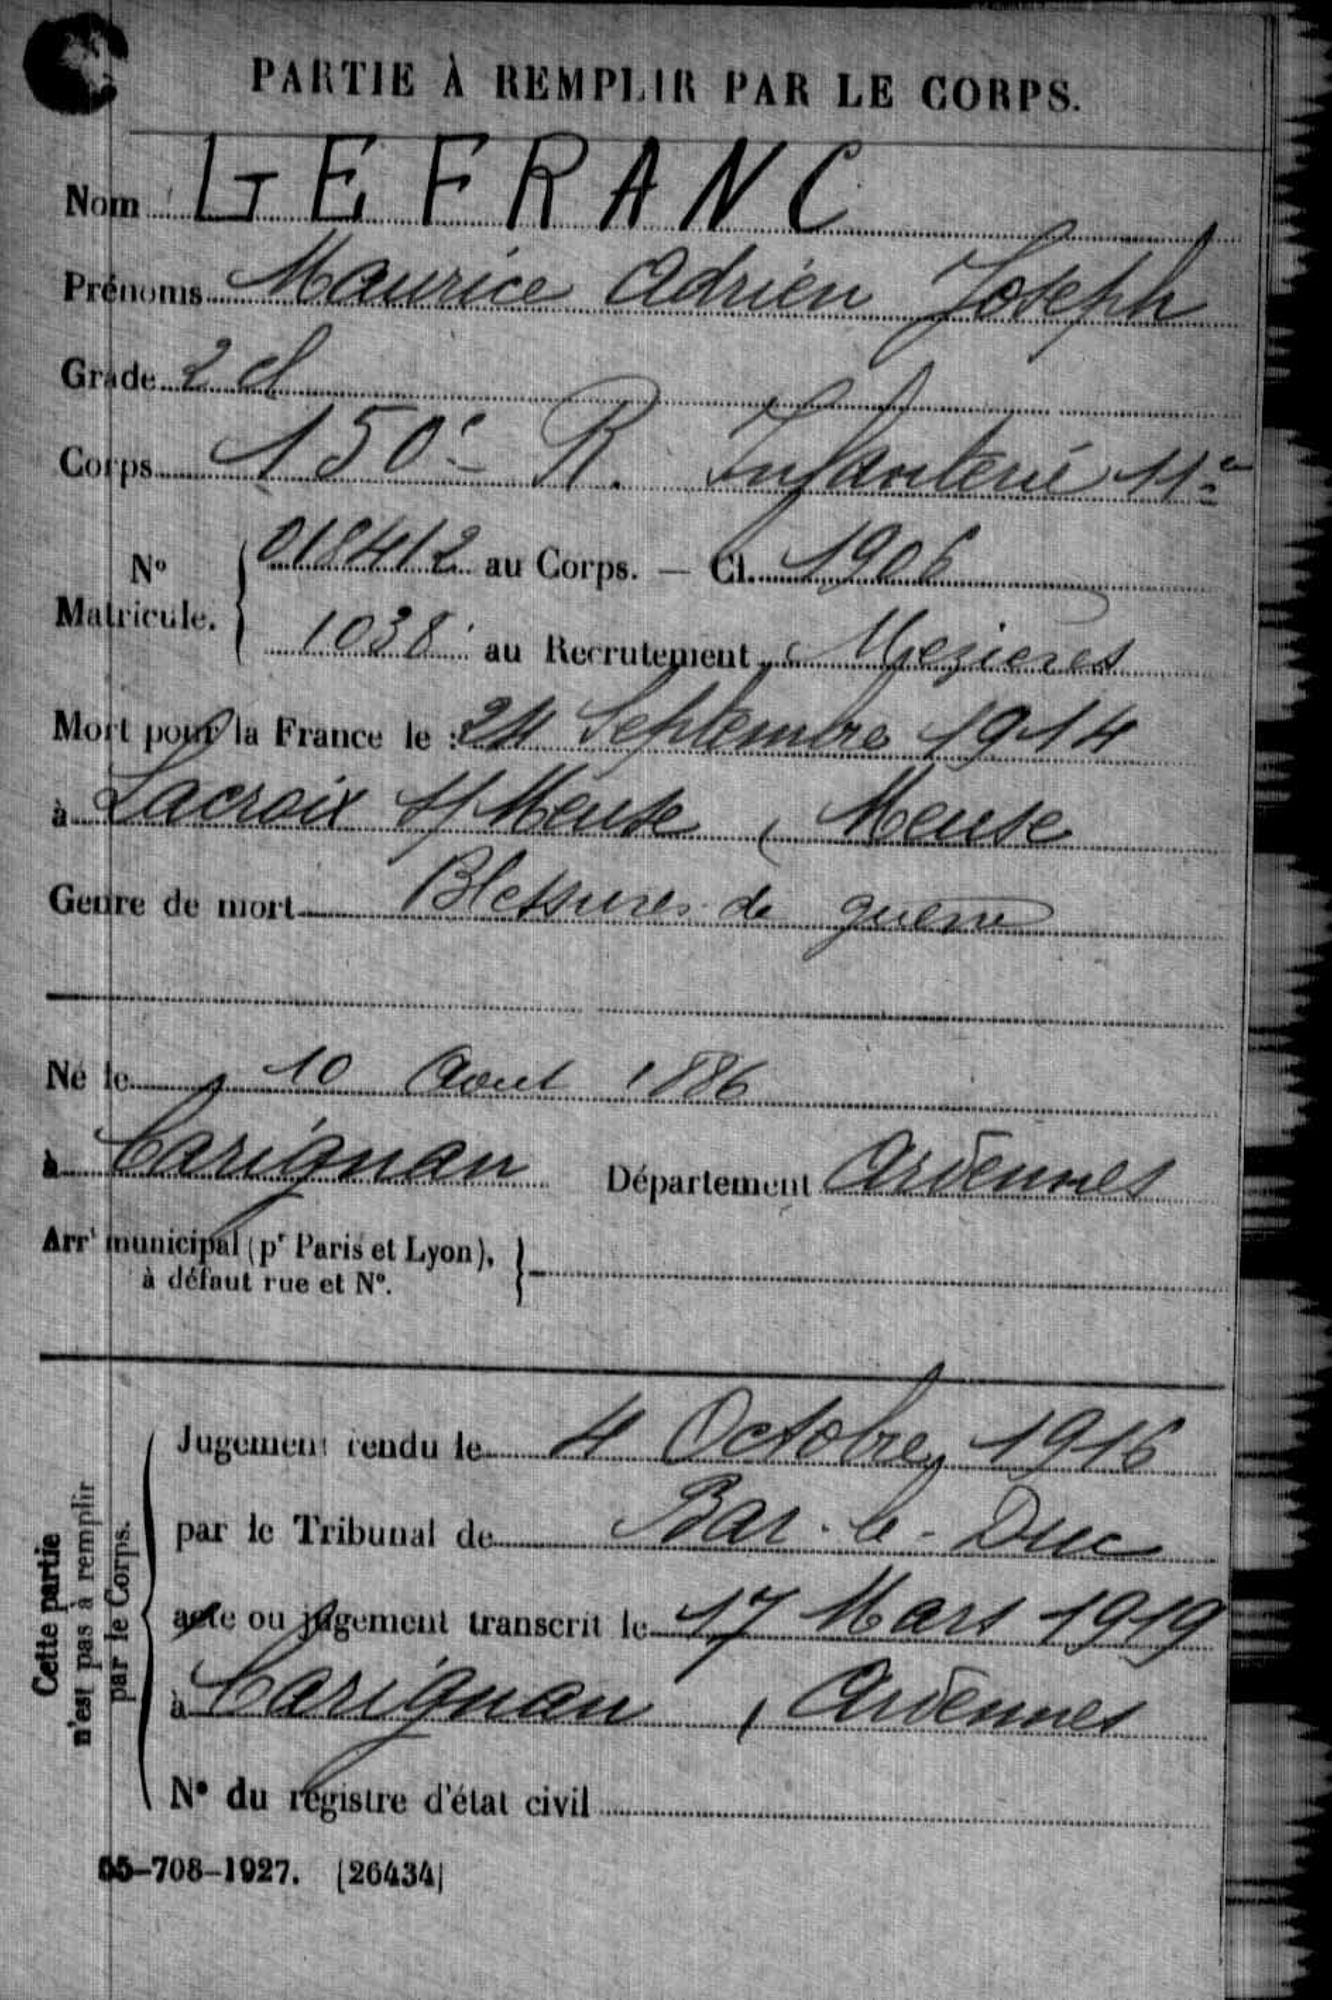 PARTIE À REMPLIR PAR LE CORPS.
Nom GEFRANC
Prénoms Maurice Adrien Joseph
Grade 2 cl
Corps 150e R. Infanterie 11e
No Matricule. 018412 au Corps. — Cl. 1906
1038 au Recrutement Mezieres
Mort pour la France le 24 Septembre 1914
à Lacroix s/ Meuse ( Meuse
Genre de mort Blessures de guerre
Né le 10 Aout 1886
à Carignan Département Ardennes
Arrt municipal (pr Paris et Lyon),
à défaut rue et No.
Cette partie
n'est pas à remplir
par le Corps.
Jugement rendu le 4 Octobre 1916
par le Tribunal de Bar-le-Duc
acte ou jugement transcrit le 17 Mars 1919
à Carignan, Ardennes
No du registre d'état civil
55-708-1927. [26434]